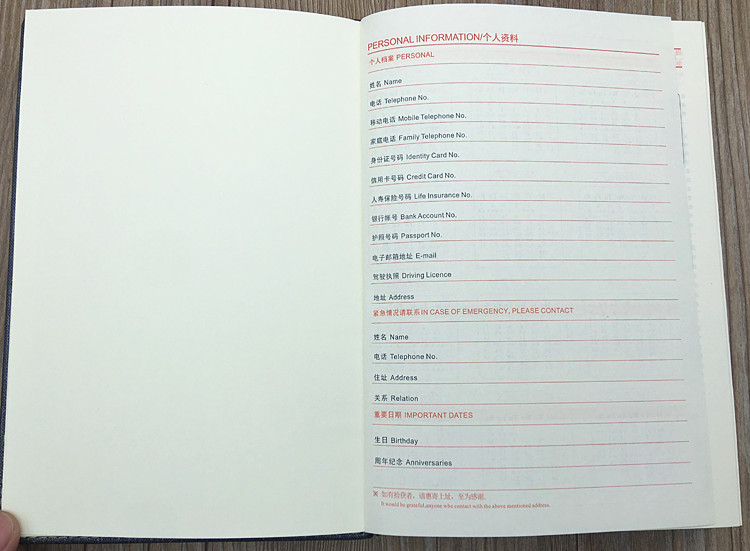 PERSONAL INFORMATION/个人资料
个人档案 PERSONAL
姓名 Name
电话 Telephone No.
移动电话 Mobile Telephone No.
家庭电话 Family Telephone No.
身份证号码 Identity Card No.
信用卡号码 Credit Card No.
人寿保险号码 Life Insurance No.
银行帐号 Bank Account No.
护照号码 Passport No.
电子邮箱地址 E-mail
驾驶执照 Driving Licence
地址 Address
紧急情况请联系 IN CASE OF EMERGENCY, PLEASE CONTACT
姓名 Name
电话 Telephone No.
住址 Address
关系 Relation
重要日期 IMPORTANT DATES
生日 Birthday
周年纪念 Anniversaries
※ 如有拾获者，请惠寄上址，至为感谢。
It would be grateful,anyone who contact with the above mentioned address.